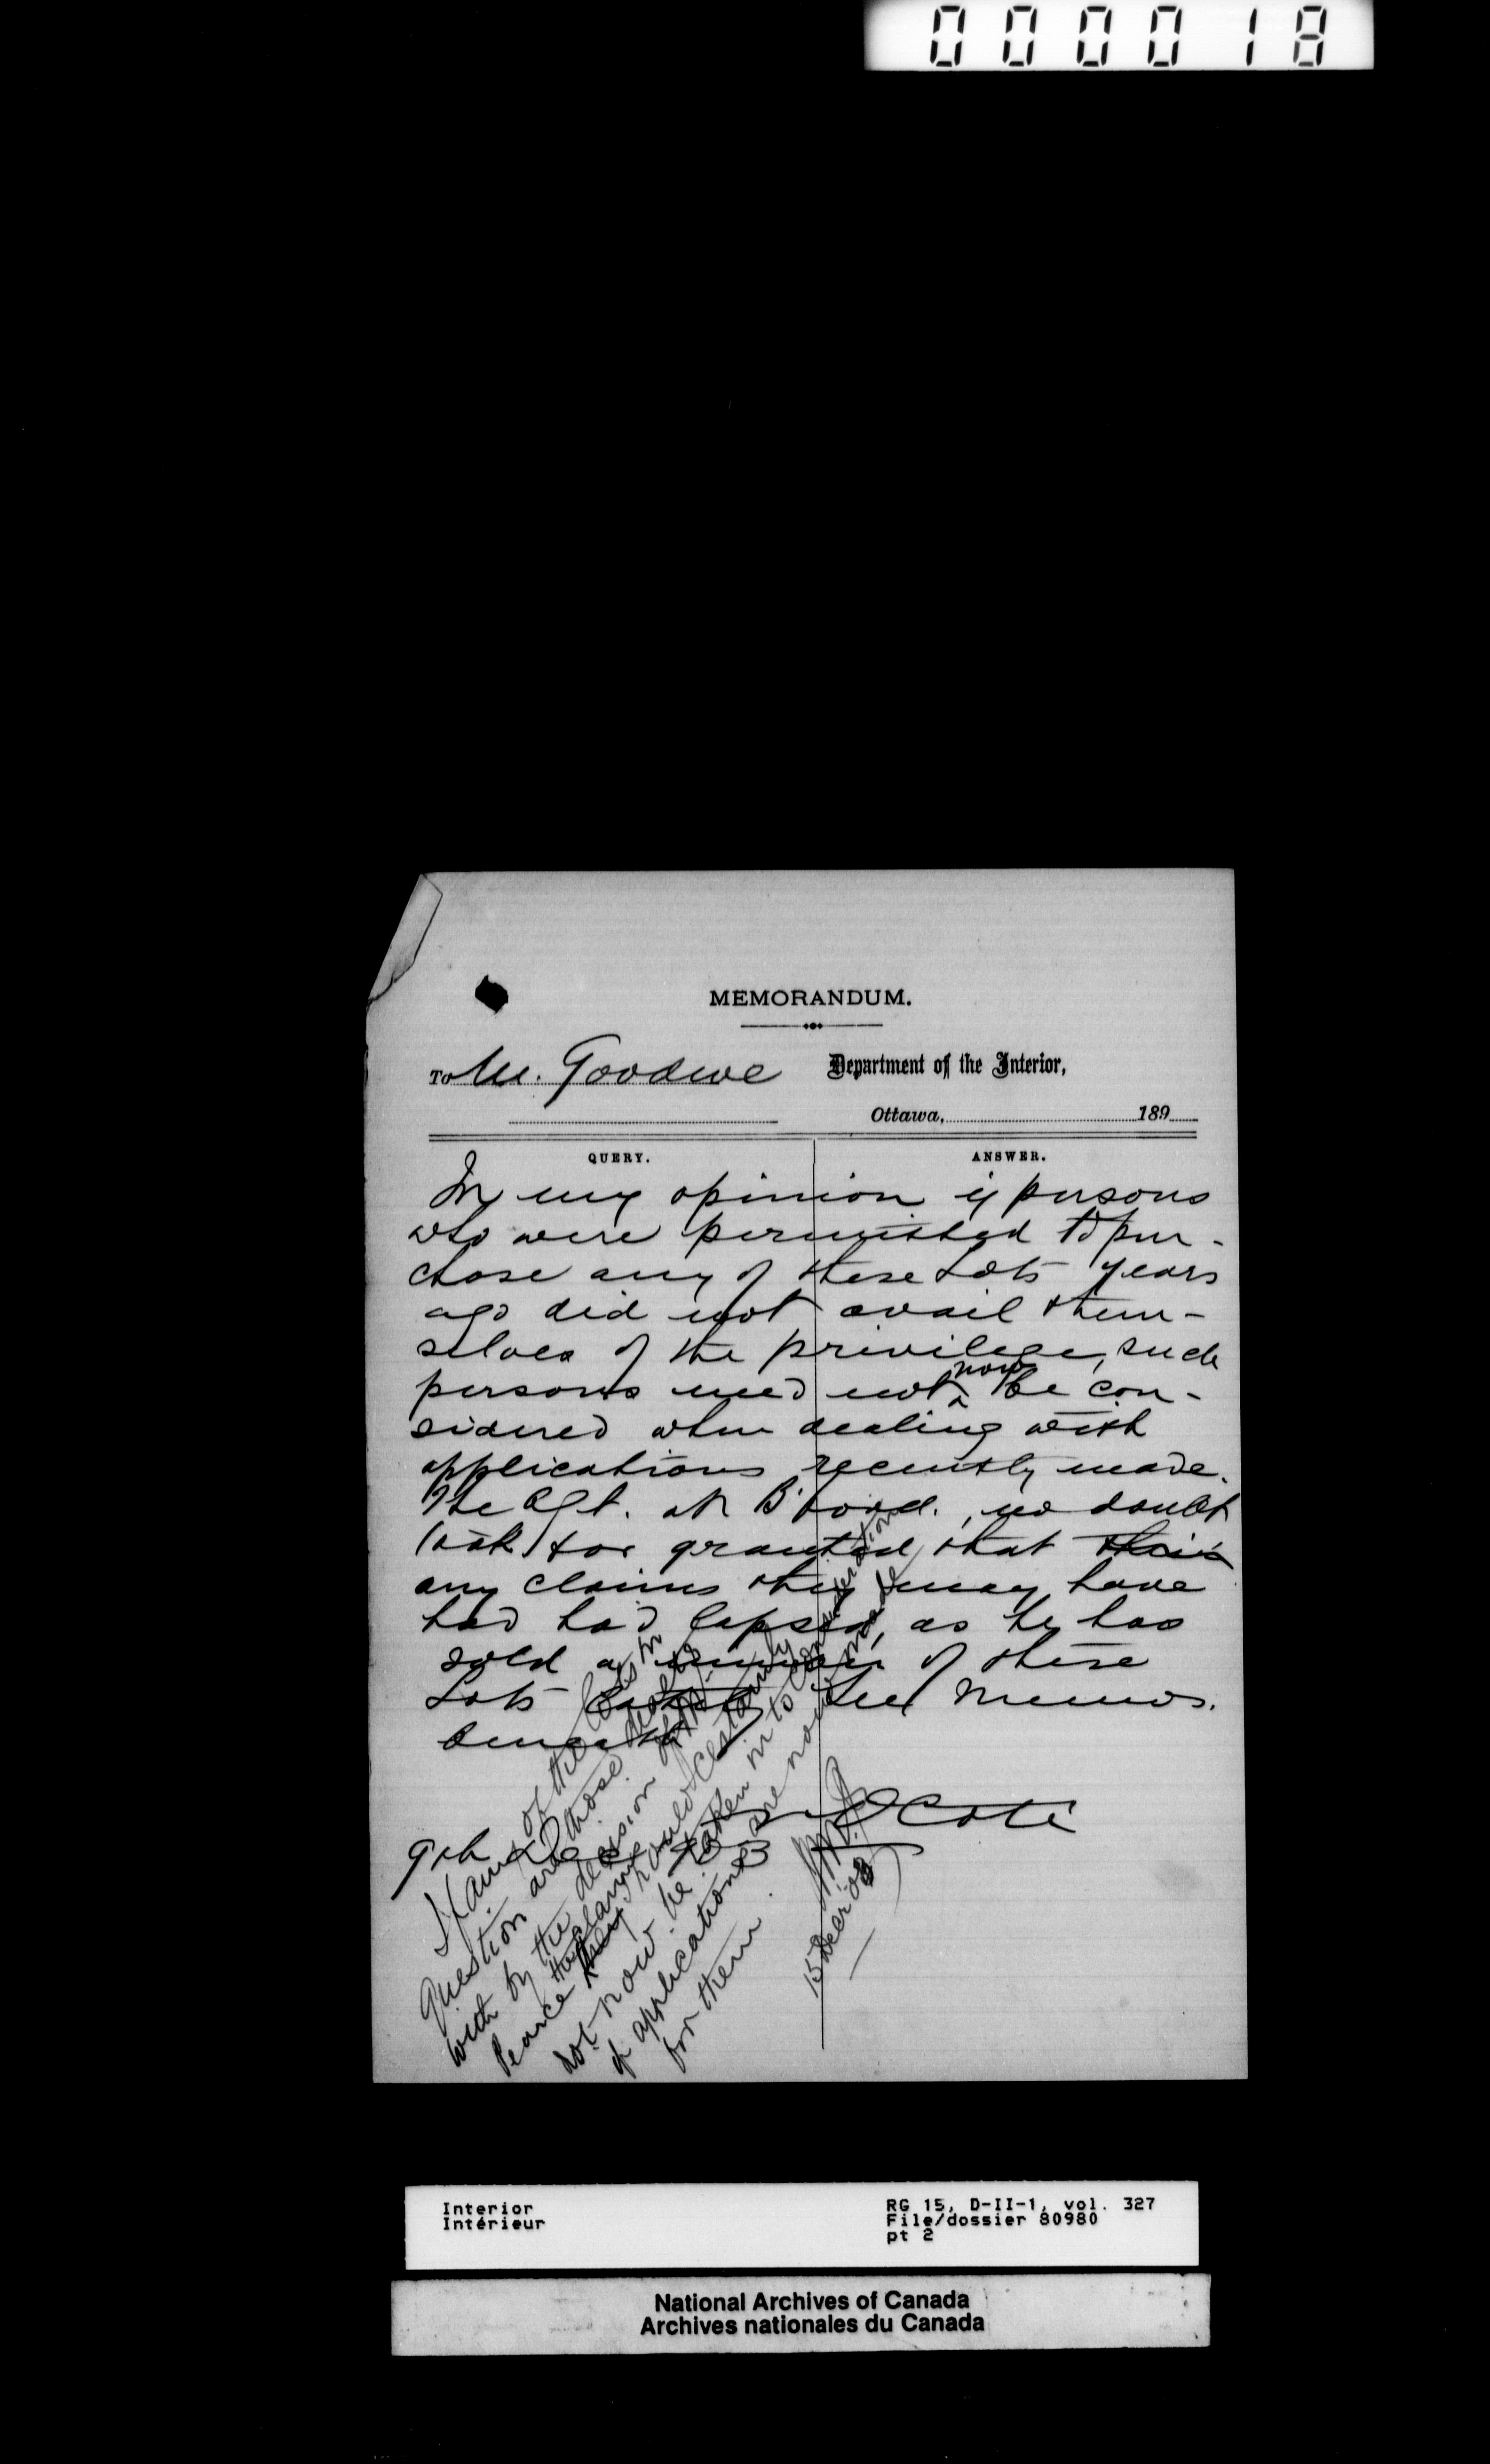 000018
MEMORANDUM.
To M. Goodeve Department of the Interior,
Ottawa, 189
QUERY. ANSWER.
In my opinion if persons
who were permitted to pur-
chase any of these Lots years
ago did not avail them-
selves of the privilege, such
persons need not now be con-
sidered when dealing with
applications recently made.
The Agt. at B'ford., no doubt
took for granted that this
any claims they may have
had had lapsed, as he has
sold a number of these
Lots See memos.
beneath
Cote
9th Dec
If any of the lots in
question are those dealt
with by the decision of Mr.
Pearce the claims should certainly
not now be taken into consideration
if applications are now made
for them.
15 Decr 03
Interior
Intérieur
RG 15, D-II-1, vol. 327
File/dossier 80980
pt 2
National Archives of Canada
Archives nationales du Canada